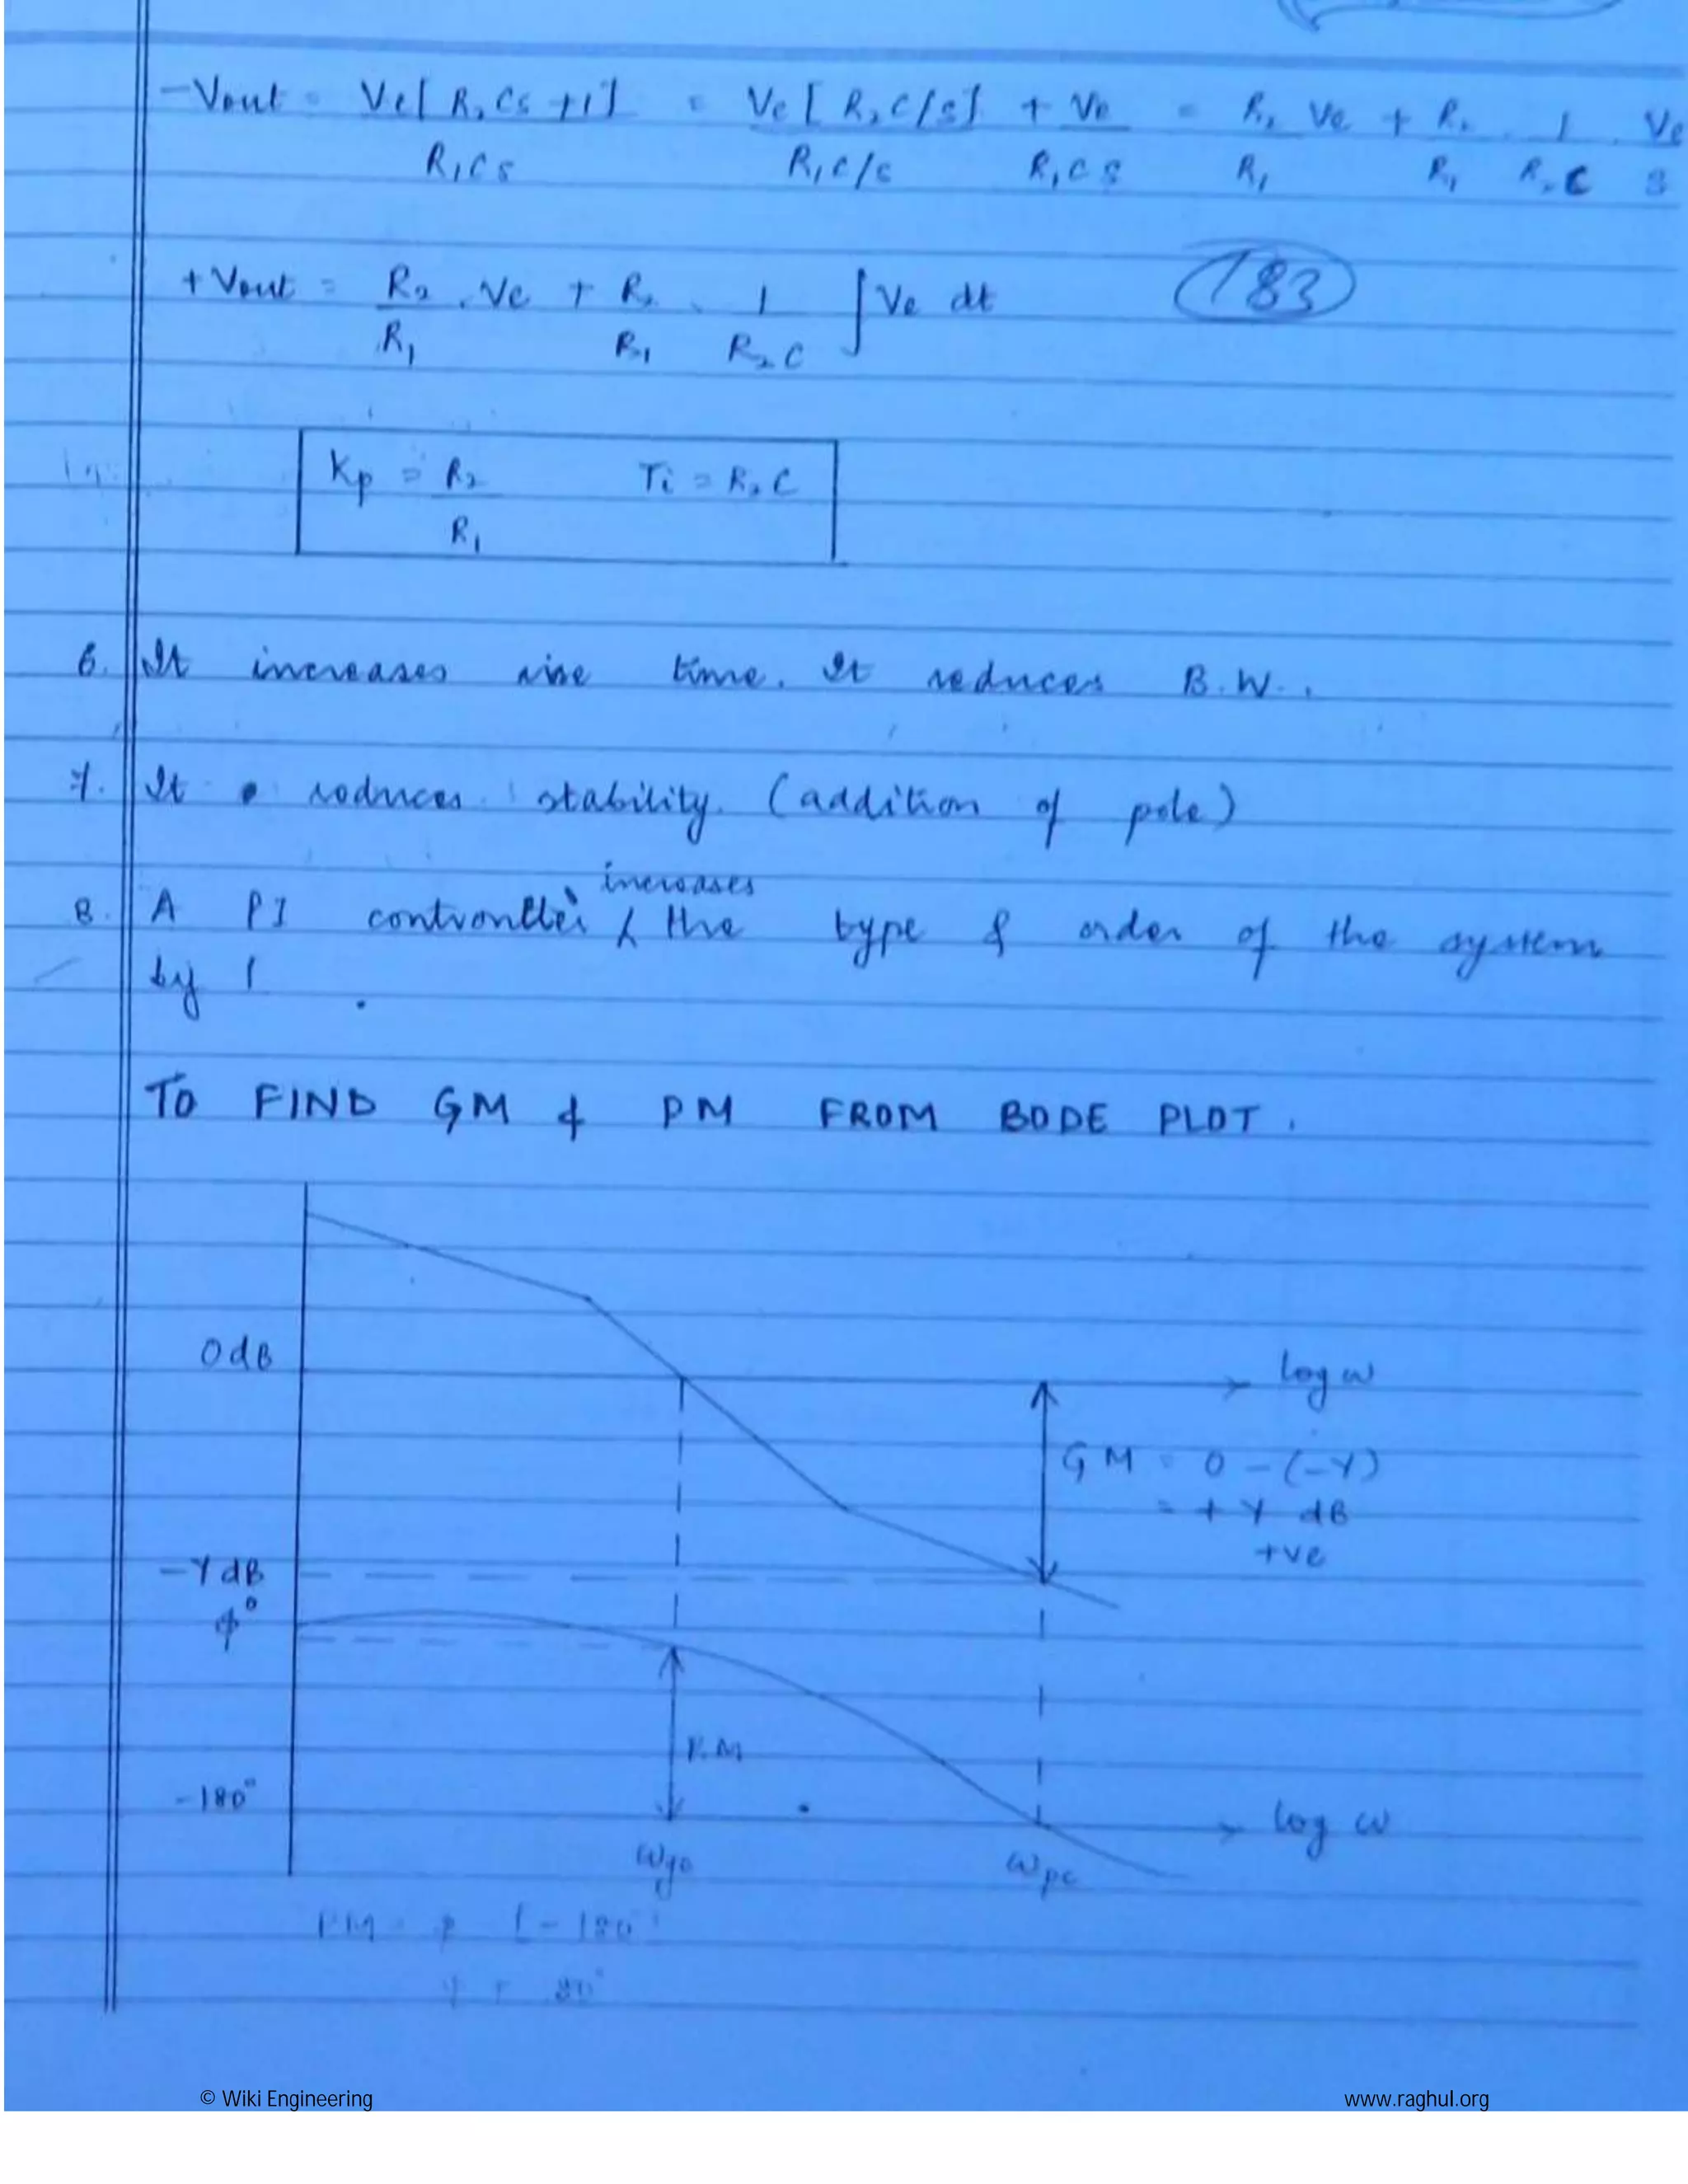 -Vout = Ve[R₂Cs+1] / R₁Cs = Ve[R₂C/s] / R₁C/s + Ve / R₁Cs = R₂/R₁ Ve + R₂/R₁ . 1/R₂C . Ve/s
+Vout = R₂/R₁ . Ve + R₂/R₁ . 1/R₂C ∫Ve dt
183
Kp = R₂/R₁ Ti = R₂C
6. It increases rise time. It reduces B.W..
7. It reduces stability. (addition of pole)
increases
8. A PI controller the type & order of the system
by 1.
TO FIND GM & PM FROM BODE PLOT.
0dB
log ω
GM = 0 - (-Y)
= + Y dB
+ve
-YdB
φ°
P.M
-180°
log ω
ωgc
ωpc
PM = φ - (-180°)
© Wiki Engineering
www.raghul.org